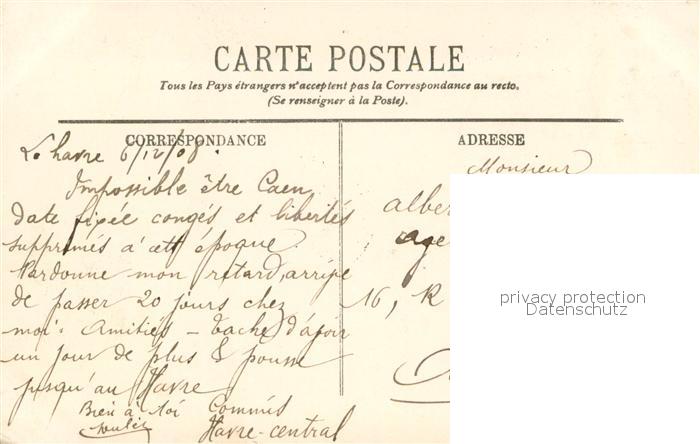 CARTE POSTALE
Tous les Pays étrangers n'acceptent pas la Correspondance au recto.
(Se renseigner à la Poste).
CORRESPONDANCE
Le havre 6/12/08.
Impossible être Caen
date fixée congés et libertés
supprimés à cett époque.
Pardonne mon retard, arrive
de passer 20 jours chez
moi. Amitiés – tache d'avoir
un jour de plus & pousse
jusqu'au Havre
Bien à toi
Commis
Havre-central
ADRESSE
Monsieur
alber
age
16, R
privacy protection
Datenschutz